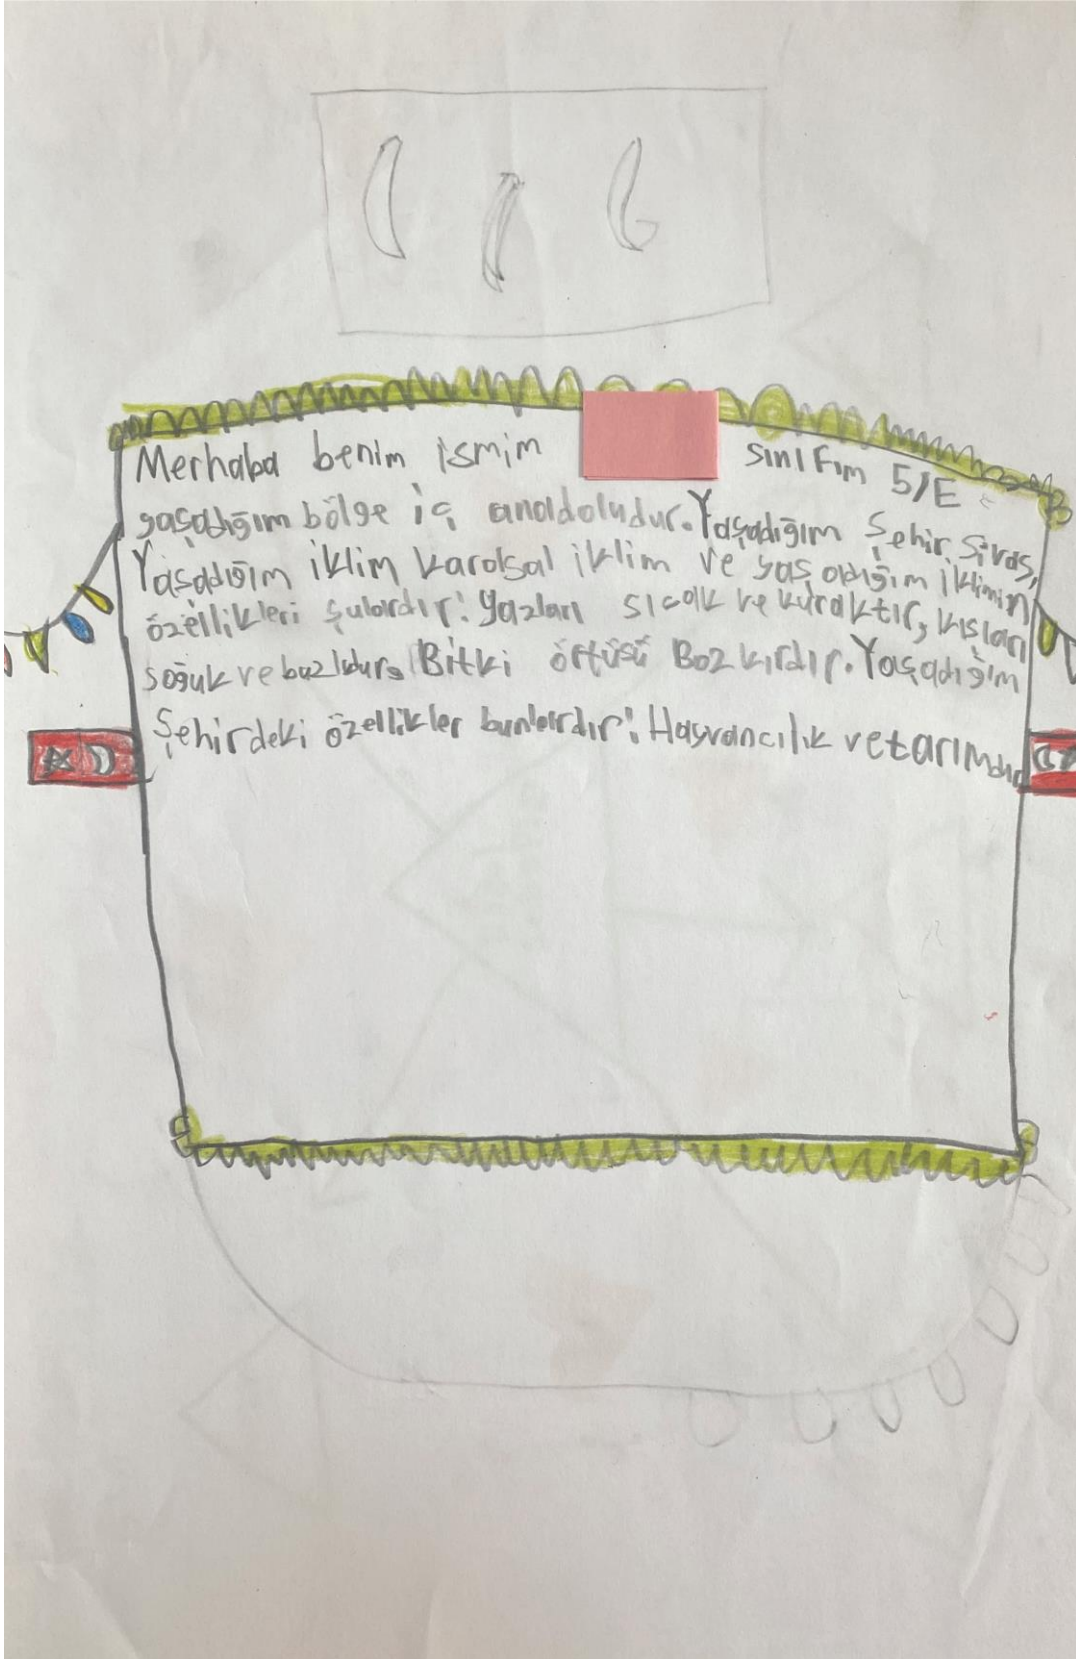 Merhaba benim ismim sınıfım 5/E
yaşadığım bölge iç anadoludur. Yaşadığım Şehir Sivas,
Yaşadığım iklim karasal iklim ve yaşadığım iklimin
özellikleri şulardır: yazları sıcak ve kuraktır, kışları
soğuk ve buzludur. Bitki örtüsü Bozkırdır. Yaşadığım
Şehirdeki özellikler bunlardır: Hayvancılık ve tarımdır